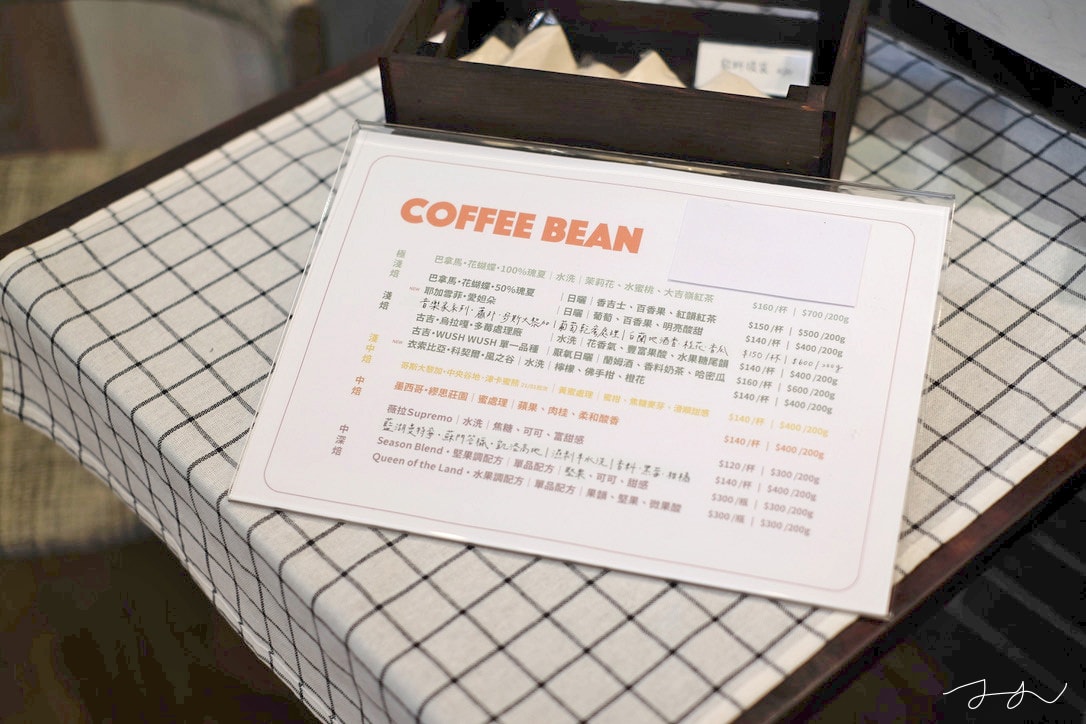 COFFEE BEAN
極淺焙
巴拿馬・花蝴蝶・100%瑰夏｜水洗｜茉莉花、水蜜桃、大吉嶺紅茶 $160 /杯 | $700 /200g
淺焙
巴拿馬・花蝴蝶・50%瑰夏｜日曬｜香吉士、百香果、紅韻紅茶 $150 /杯 | $500 /200g
NEW 耶加雪菲・愛妲朵｜日曬｜葡萄、百香果、明亮酸甜 $140 /杯 | $400 /200g
音樂家系列・蕭邦・哥斯大黎加｜葡萄乾蜜處理｜白蘭地酒香 桂花 $150 /杯 | $600 /200g
古吉・烏拉嘎・多莓處理廠｜水洗｜花香氣、豐富果酸、水果糖尾韻 $140 /杯 | $400 /200g
古吉・WUSH WUSH 單一品種｜厭氧日曬｜蘭姆酒、香料奶茶、哈密瓜 $160 /杯 | $600 /200g
NEW 衣索比亞・科契爾・風之谷｜水洗｜檸檬、佛手柑、橙花 $140 /杯 | $400 /200g
淺中焙
哥斯大黎加・中央谷地・ 黃蜜處理｜蜜柑、焦糖 $140 /杯 | $400 /200g
中焙
墨西哥・繆思莊園｜蜜處理｜蘋果、肉桂、柔和酸香 $140 /杯 | $400 /200g
中深焙
薇拉Supremo｜水洗｜焦糖、可可、富甜感 $120 /杯 | $300 /200g
藍湖曼特寧・蘇門答臘・ 高地｜濕剝半水洗｜香料 黑 柑橘 $140 /杯 | $400 /200g
Season Blend・堅果調配方｜單品配方｜堅果、可可、甜感 $300 /瓶 | $300 /200g
Queen of the Land・水果調配方｜單品配方｜果韻、堅果、微果酸 $300 /瓶 | $300 /200g